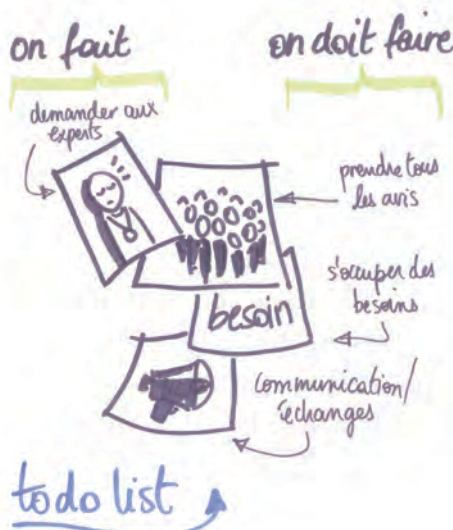 on fait
on doit faire
demander aux
experts
prendre tous
les avis
s'occuper des
besoins
besoin
communication/
échanges
todo list